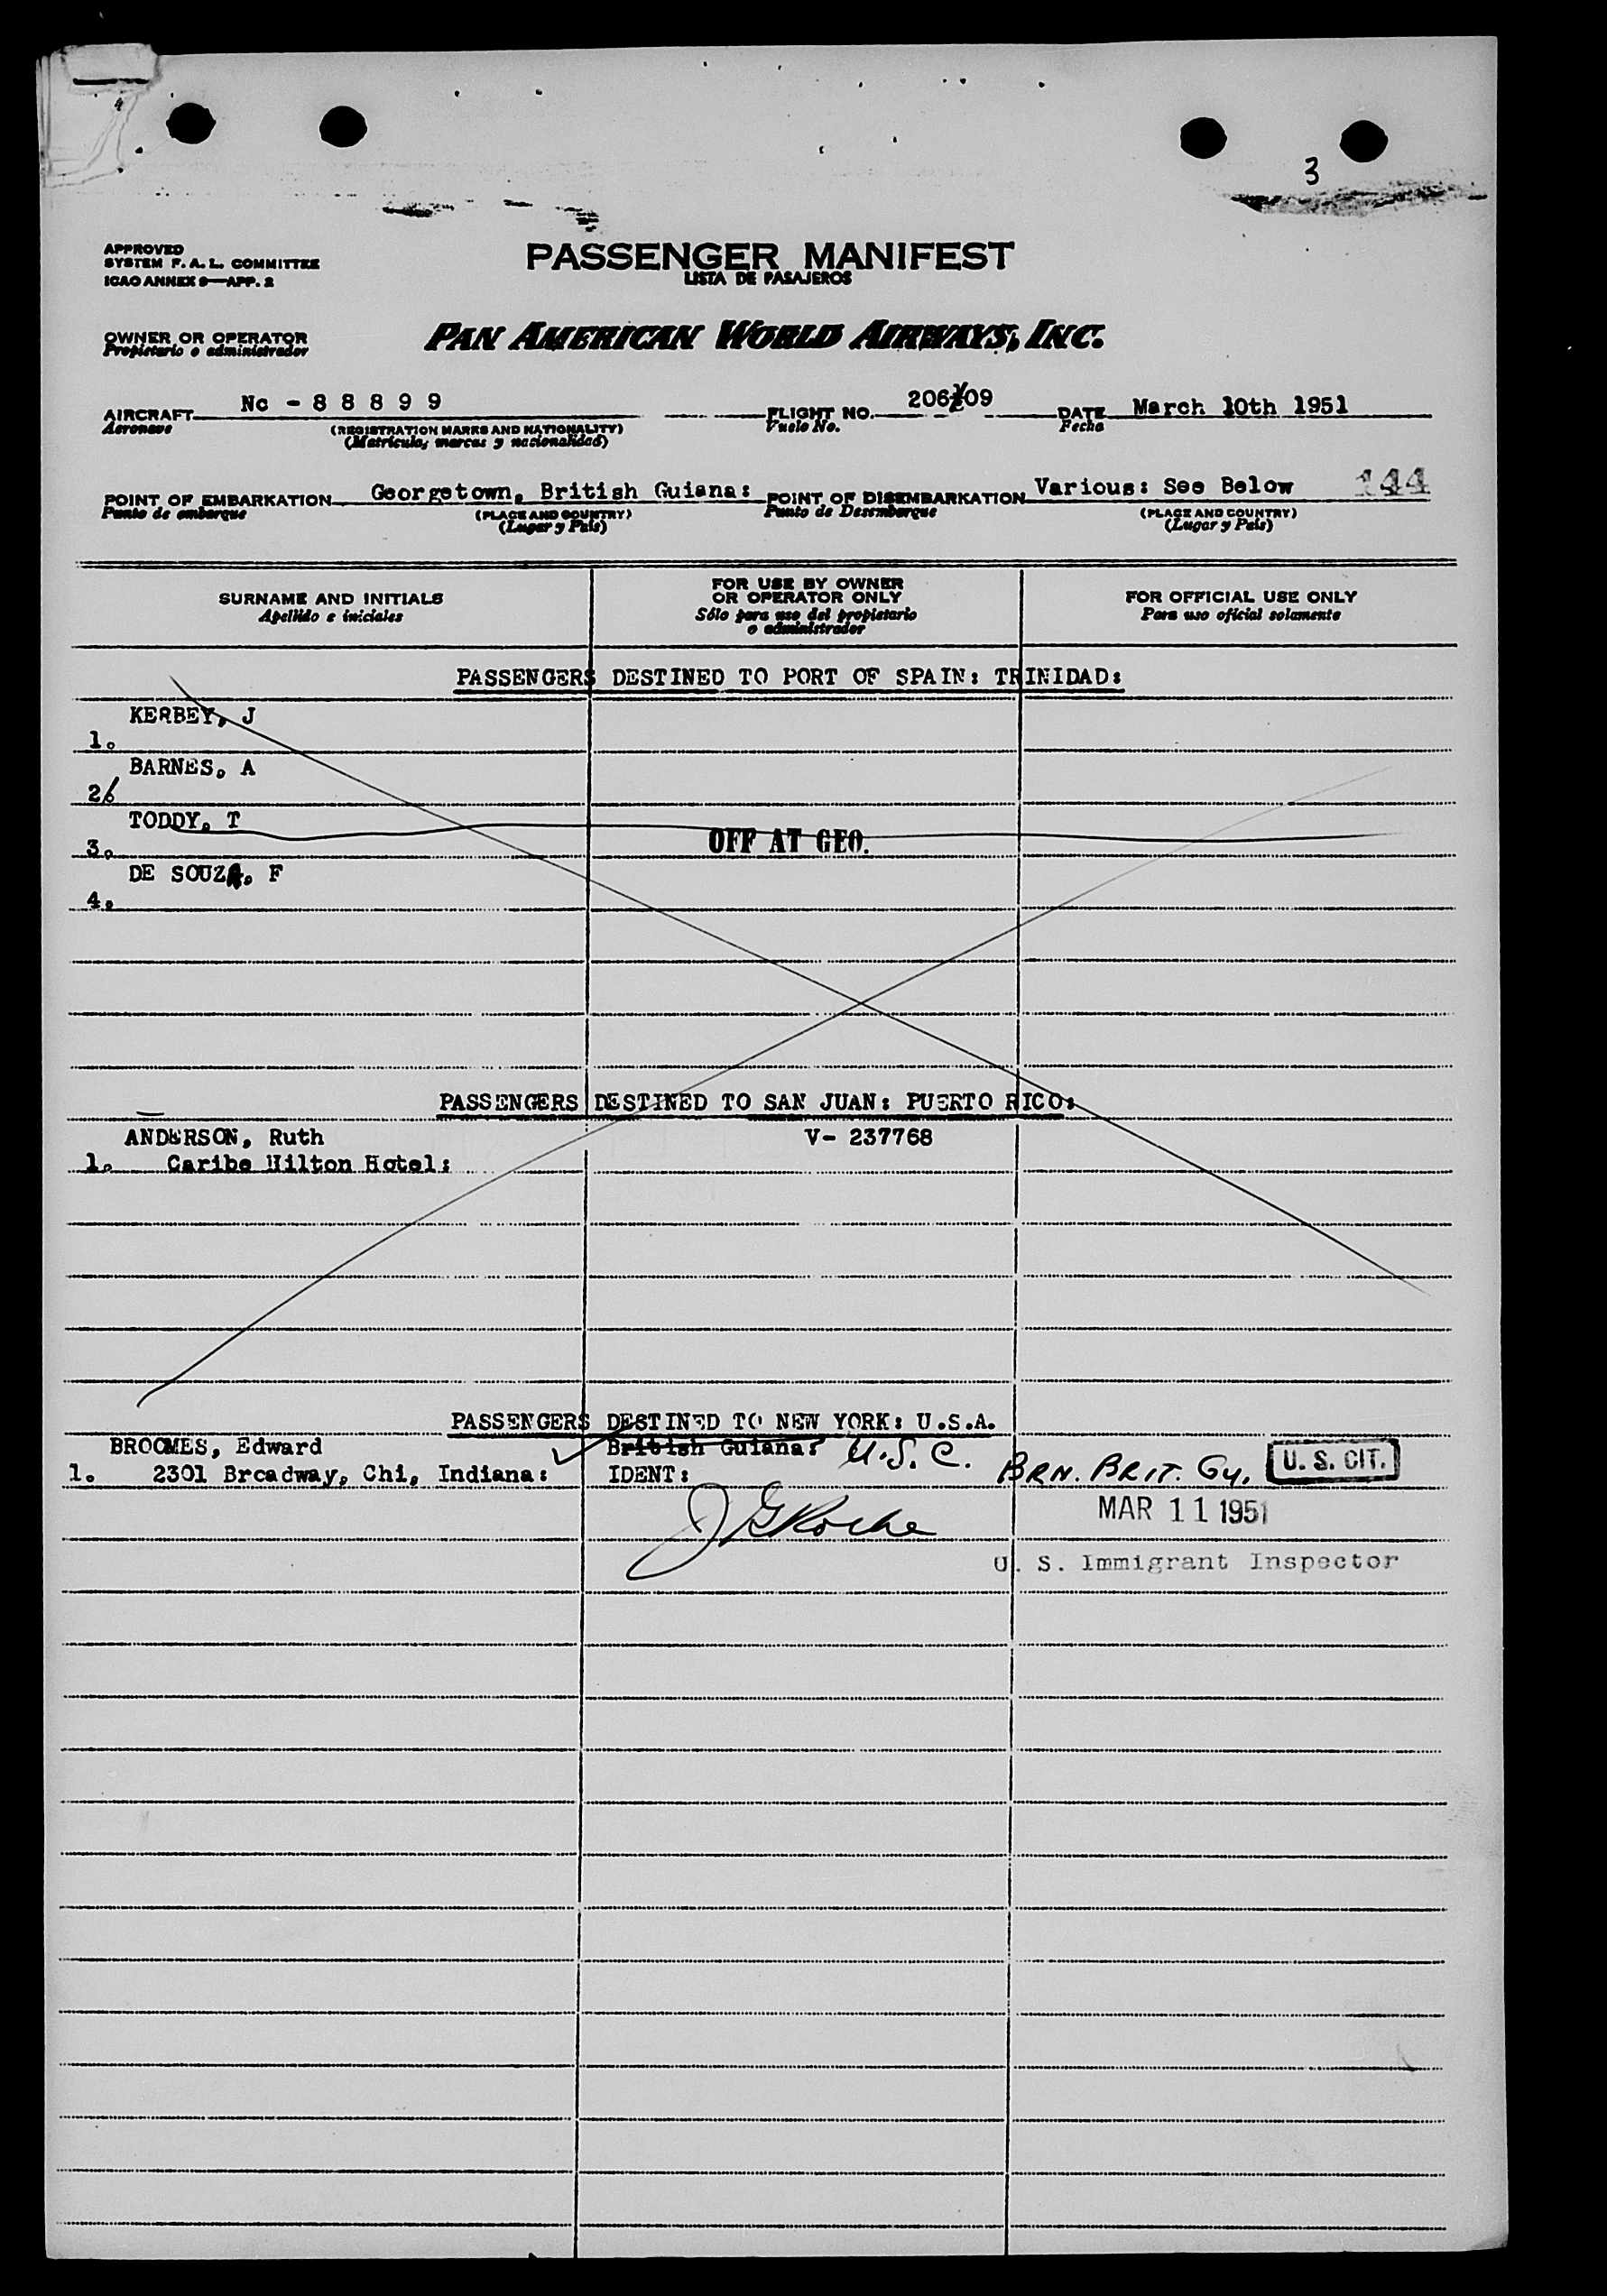 3
APPROVED
SYSTEM F. A. L. COMMITTEE
ICAO ANNEX 9—APP. 2
PASSENGER MANIFEST
LISTA DE PASAJEROS
OWNER OR OPERATOR
Propietario o administrador
PAN AMERICAN WORLD AIRWAYS, INC.
AIRCRAFT Nc - 8 8 8 9 9 FLIGHT NO. 206/09 DATE March 10th 1951
Aeronave (REGISTRATION MARKS AND NATIONALITY) Vuelo No. Fecha
(Matrícula, marcas y nacionalidad)
POINT OF EMBARKATION Georgetown, British Guiana: POINT OF DISEMBARKATION Various: See Below 144
Punto de embarque (PLACE AND COUNTRY) Punto de Desembarque (PLACE AND COUNTRY)
(Lugar y País) (Lugar y País)
SURNAME AND INITIALS FOR USE BY OWNER OR OPERATOR ONLY FOR OFFICIAL USE ONLY
Apellido e iniciales Sólo para uso del propietario o administrador Para uso oficial solamente
PASSENGERS DESTINED TO PORT OF SPAIN: TRINIDAD:
KERBEY, J
1.
BARNES. A
2.
TODDY. T
OFF AT GEO.
3.
DE SOUZA. F
4.
PASSENGERS DESTINED TO SAN JUAN: PUERTO RICO:
ANDERSON, Ruth V- 237768
1. Caribe Hilton Hotel:
PASSENGERS DESTINED TO NEW YORK: U.S.A.
BROOMES, Edward British Guiana: U.S.C. BRN. BRIT. GU. U. S. CIT.
1. 2301 Broadway, Chi, Indiana: IDENT:
JGRoche MAR 11 1951
U. S. Immigrant Inspector